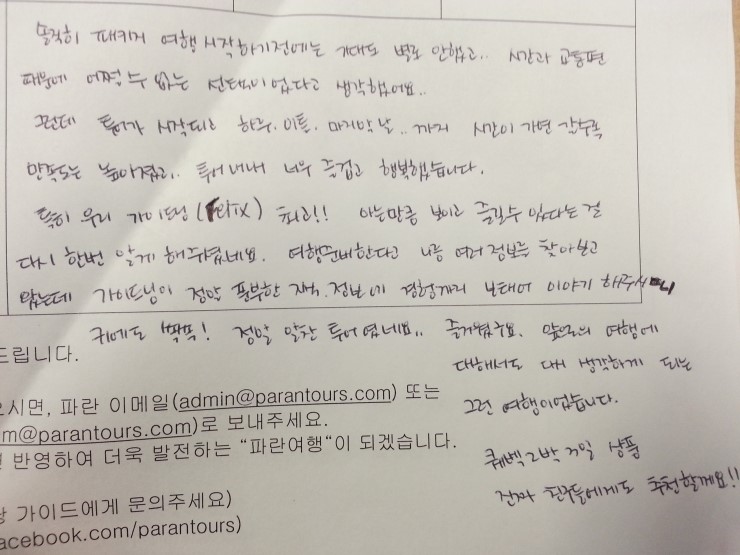 솔직히 패키지 여행 시작하기전에는 기대도 별로 안했고.. 시간과 교통편
때문에 어쩔 수 없는 선택이었다고 생각했어요..
그런데 투어가 시작되고 하루. 이틀. 마지막 날.. 까지 시간이 가면 갈수록
만족도는 높아졌고.. 투어내내 너무 즐겁고 행복했습니다.
특히 우리 가이드님 (Felix) 최고!! 아는만큼 보이고 즐길수 있다는 걸
다시 한번 알게 해주셨네요. 여행준비한다고 나름 여러 정보를 찾아보고
왔는데 가이드님이 정말 풍부한 지식. 정보에 경험까지 보태어 이야기 해주시니
귀에도 쏙쏙! 정말 알찬 투어였네요.. 즐거웠구요. 앞으로의 여행에
대해서도 다시 생각하게 되는
그런 여행이었습니다.
퀘벡 2박 3일 상품
진짜 친구들에게도 추천할게요!!
드립니다.
으시면, 파란 이메일(admin@parantours.com) 또는
m@parantours.com)로 보내주세요.
반영하여 더욱 발전하는 "파란여행"이 되겠습니다.
가이드에게 문의주세요)
acebook.com/parantours)